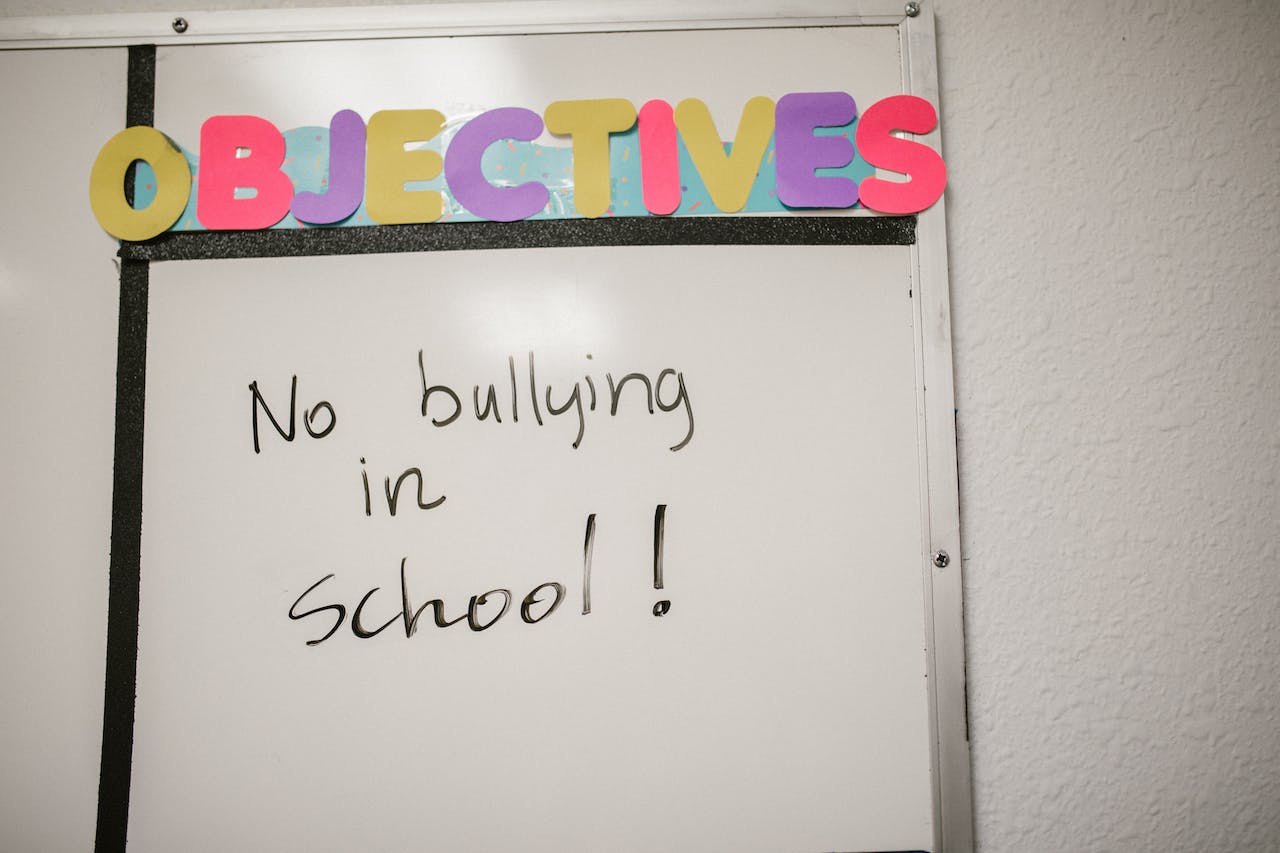 OBJECTIVES
No bullying
in
school!